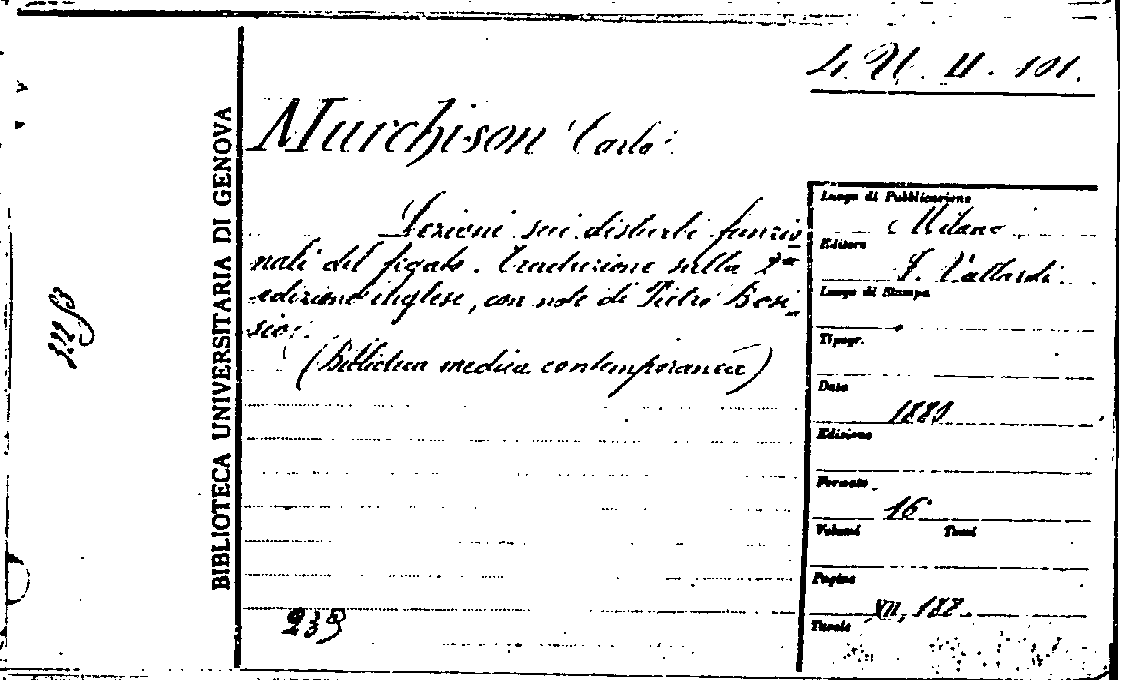 4. U. II. 101.
Murchison Carlo.
Lezioni sui disturbi funzio-
nali del fegato. Traduzione sulla 2ª
edizione inglese, con note di Pietro Bosi-
sio.
(Biblioteca medica contemporanea)
239
BIBLIOTECA UNIVERSITARIA DI GENOVA
Luogo di Pubblicazione
Milano
Editore
F. Vallardi.
Luogo di Stampa
Tipogr.
Data
Edizione
Formato
16°
Volumi Tomi
Pagine
XII, 188.
Tavole